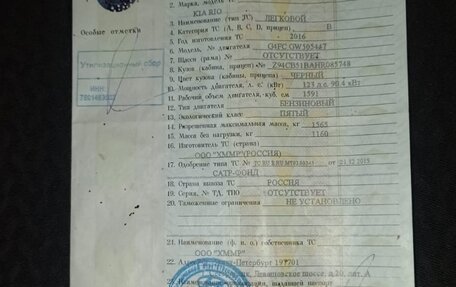 Особые отметки
Утилизационный сбор
ИНН:
2. Марка, модель Т
KIA RIO
3. Наименование (тип ТС) ЛЕГКОВОЙ
4. Категория ТС (А, В, С, D, прицеп) В
5. Год изготовления ТС 2016
6. Модель, № двигателя G4FC
7. Шасси (рама) № ОТСУТСТВУЕТ
8. Кузов (кабина, прицеп) №
9. Цвет кузова (кабины, прицепа) ЧЕРНЫЙ
10. Мощность двигателя, л. с. (кВт) 123 л.с. 90.4 кВт
11. Рабочий объем двигателя, куб. см 1591
12. Тип двигателя БЕНЗИНОВЫЙ
13. Экологический класс ПЯТЫЙ
14. Разрешенная максимальная масса, кг 1565
15. Масса без нагрузки, кг 1160
16. Изготовитель ТС (страна)
ООО "ХММР"(РОССИЯ)
17. Одобрение типа ТС № от 21.12.2015
САТР-ФОНД
18. Страна вывоза ТС РОССИЯ
19. Серия, № ТД, ТПО ОТСУТСТВУЕТ
20. Таможенные ограничения НЕ УСТАНОВЛЕНЫ
21. Наименование (ф. и. о.) собственника ТС
ООО "ХММР"
22. 197701
Левашовское шоссе, д.20, лит. А
23. выдавшей паспорт